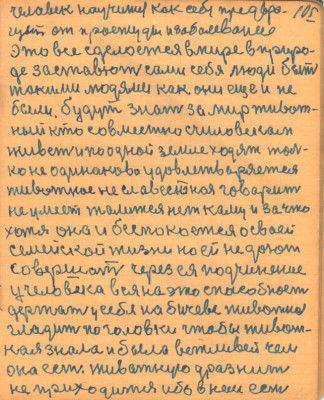 человек научитця как себя предвра- 105
тит от простуды и заболевание
Это все сделоется в мире в приро-
де заставют сами себя люди быт
такими людями как они еще и не
были. будут знат за мир живот-
ный кто совместно с человекам
живет и по одной земле ходят тол-
ко не одинаково удовлетворяется
животное не славестная говорит
не умеет жалится нет каму и за что
хотя она и беспокоется о своей
семейской жизни но ей не дают
совершат через ея подчинение
у человека вся на это способност
держат у себя на бичеве животное
гладит по головки чтобы живот-
ная знала и была вежливей чем
она ест. животную дразнит
не приходится ибо в нем ест